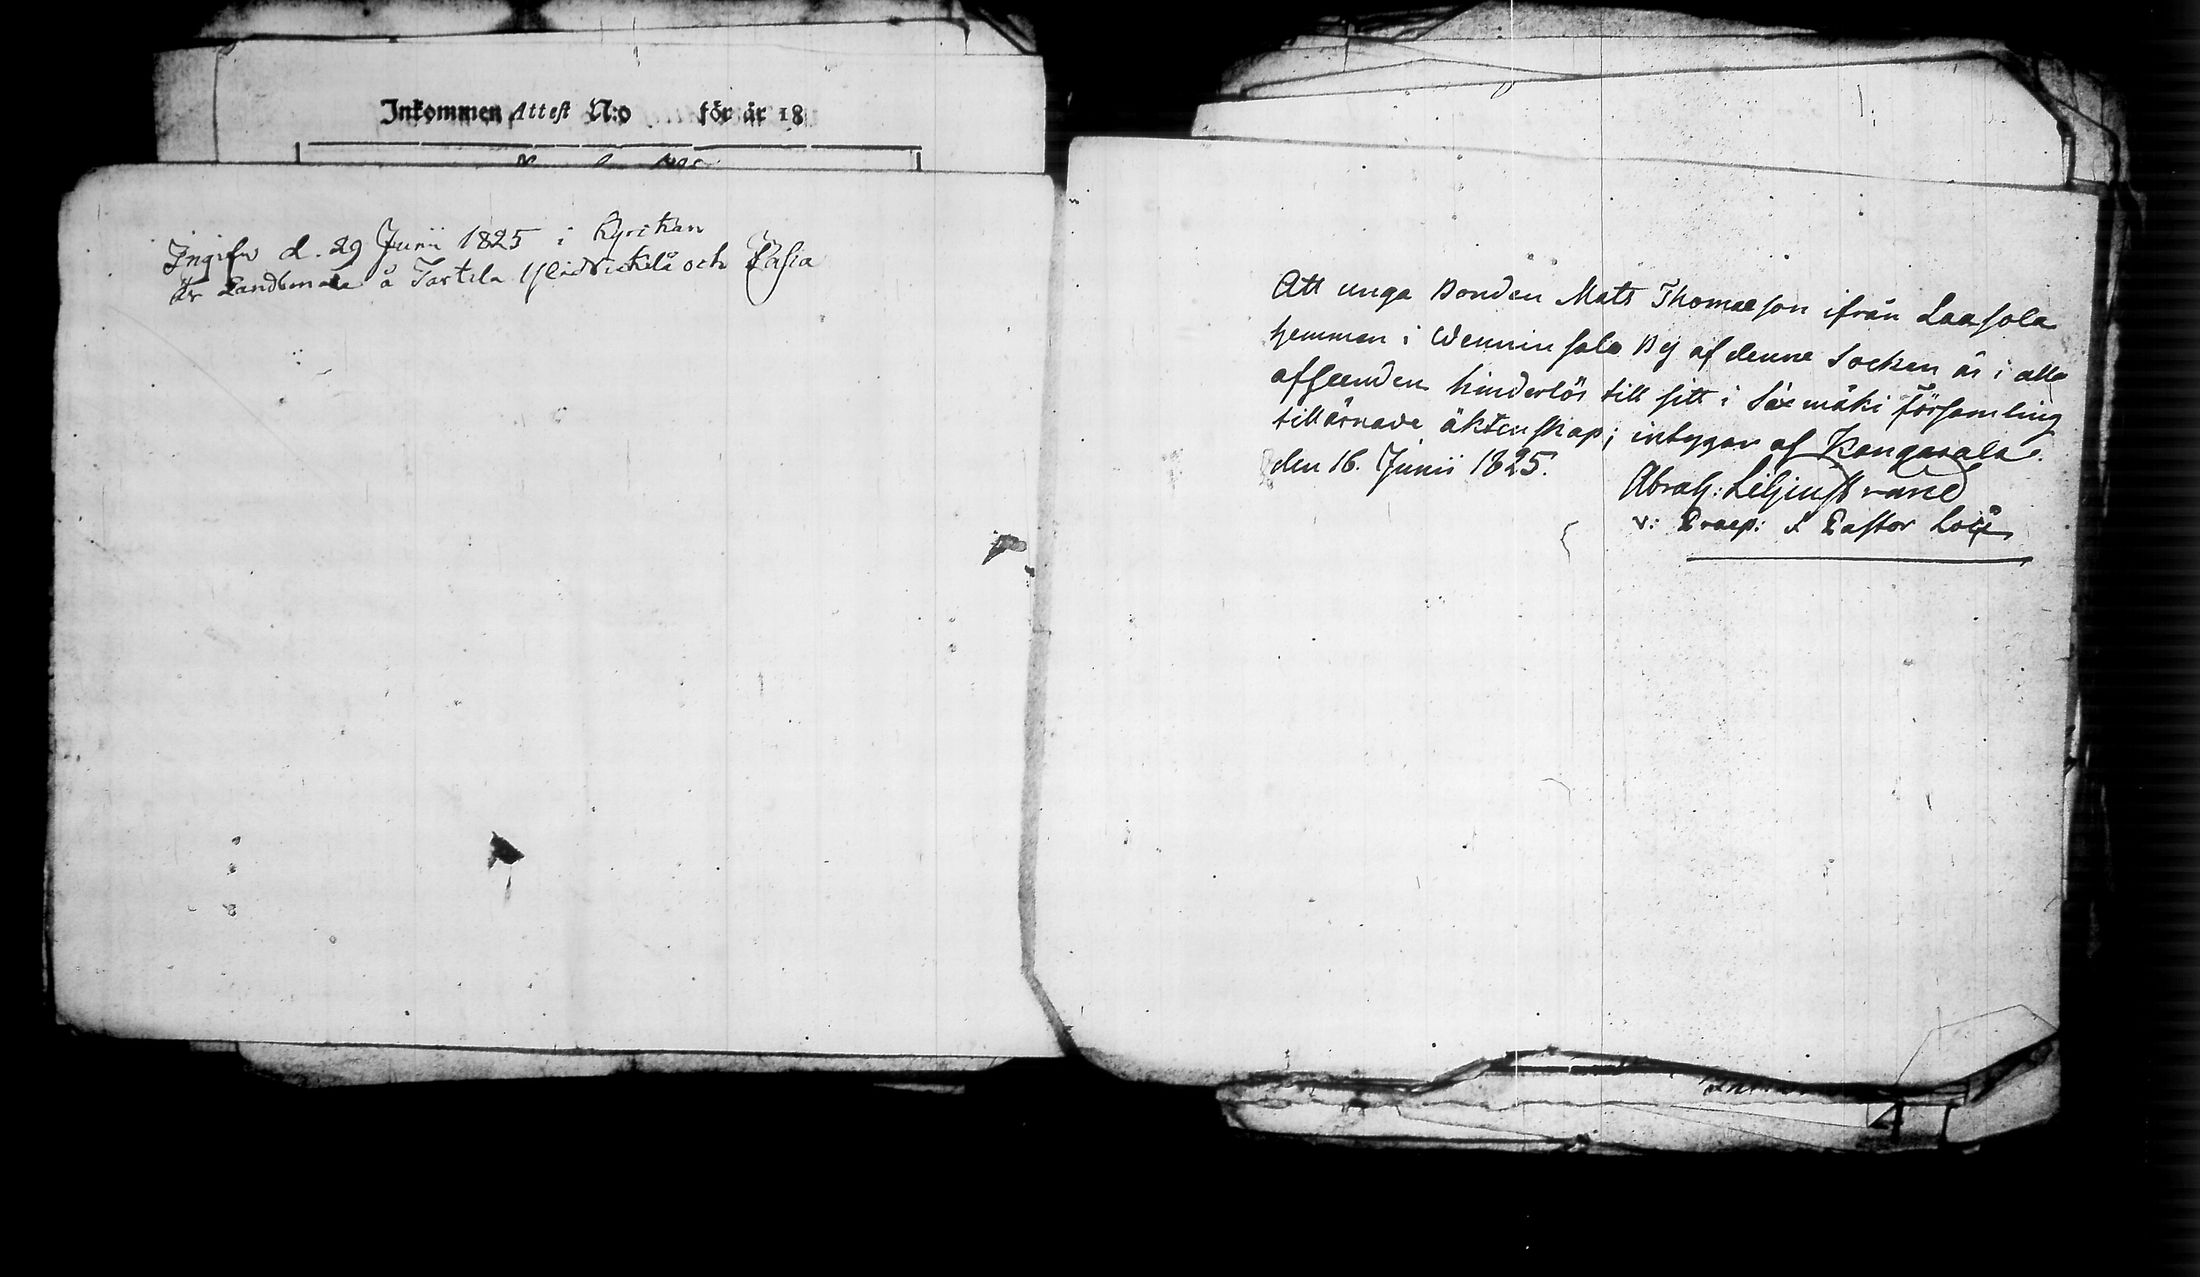 Inkommen Attest N:o för år 18
Ingifv d. 29 Junii 1825 i Kyrckan
å Tartila och
Att unga Bonden Mats Thomasson ifrån Laasola
hemman i Wenninsala By af denne Socken är i alla
afseenden hinderlös till sitt i Säxmäki Församling
tillärnade äktenskap; intygar af Kangasala.
den 16. Junii 1825.
Abrah: Liljenstrand
v: Praep: & Pastor Loci